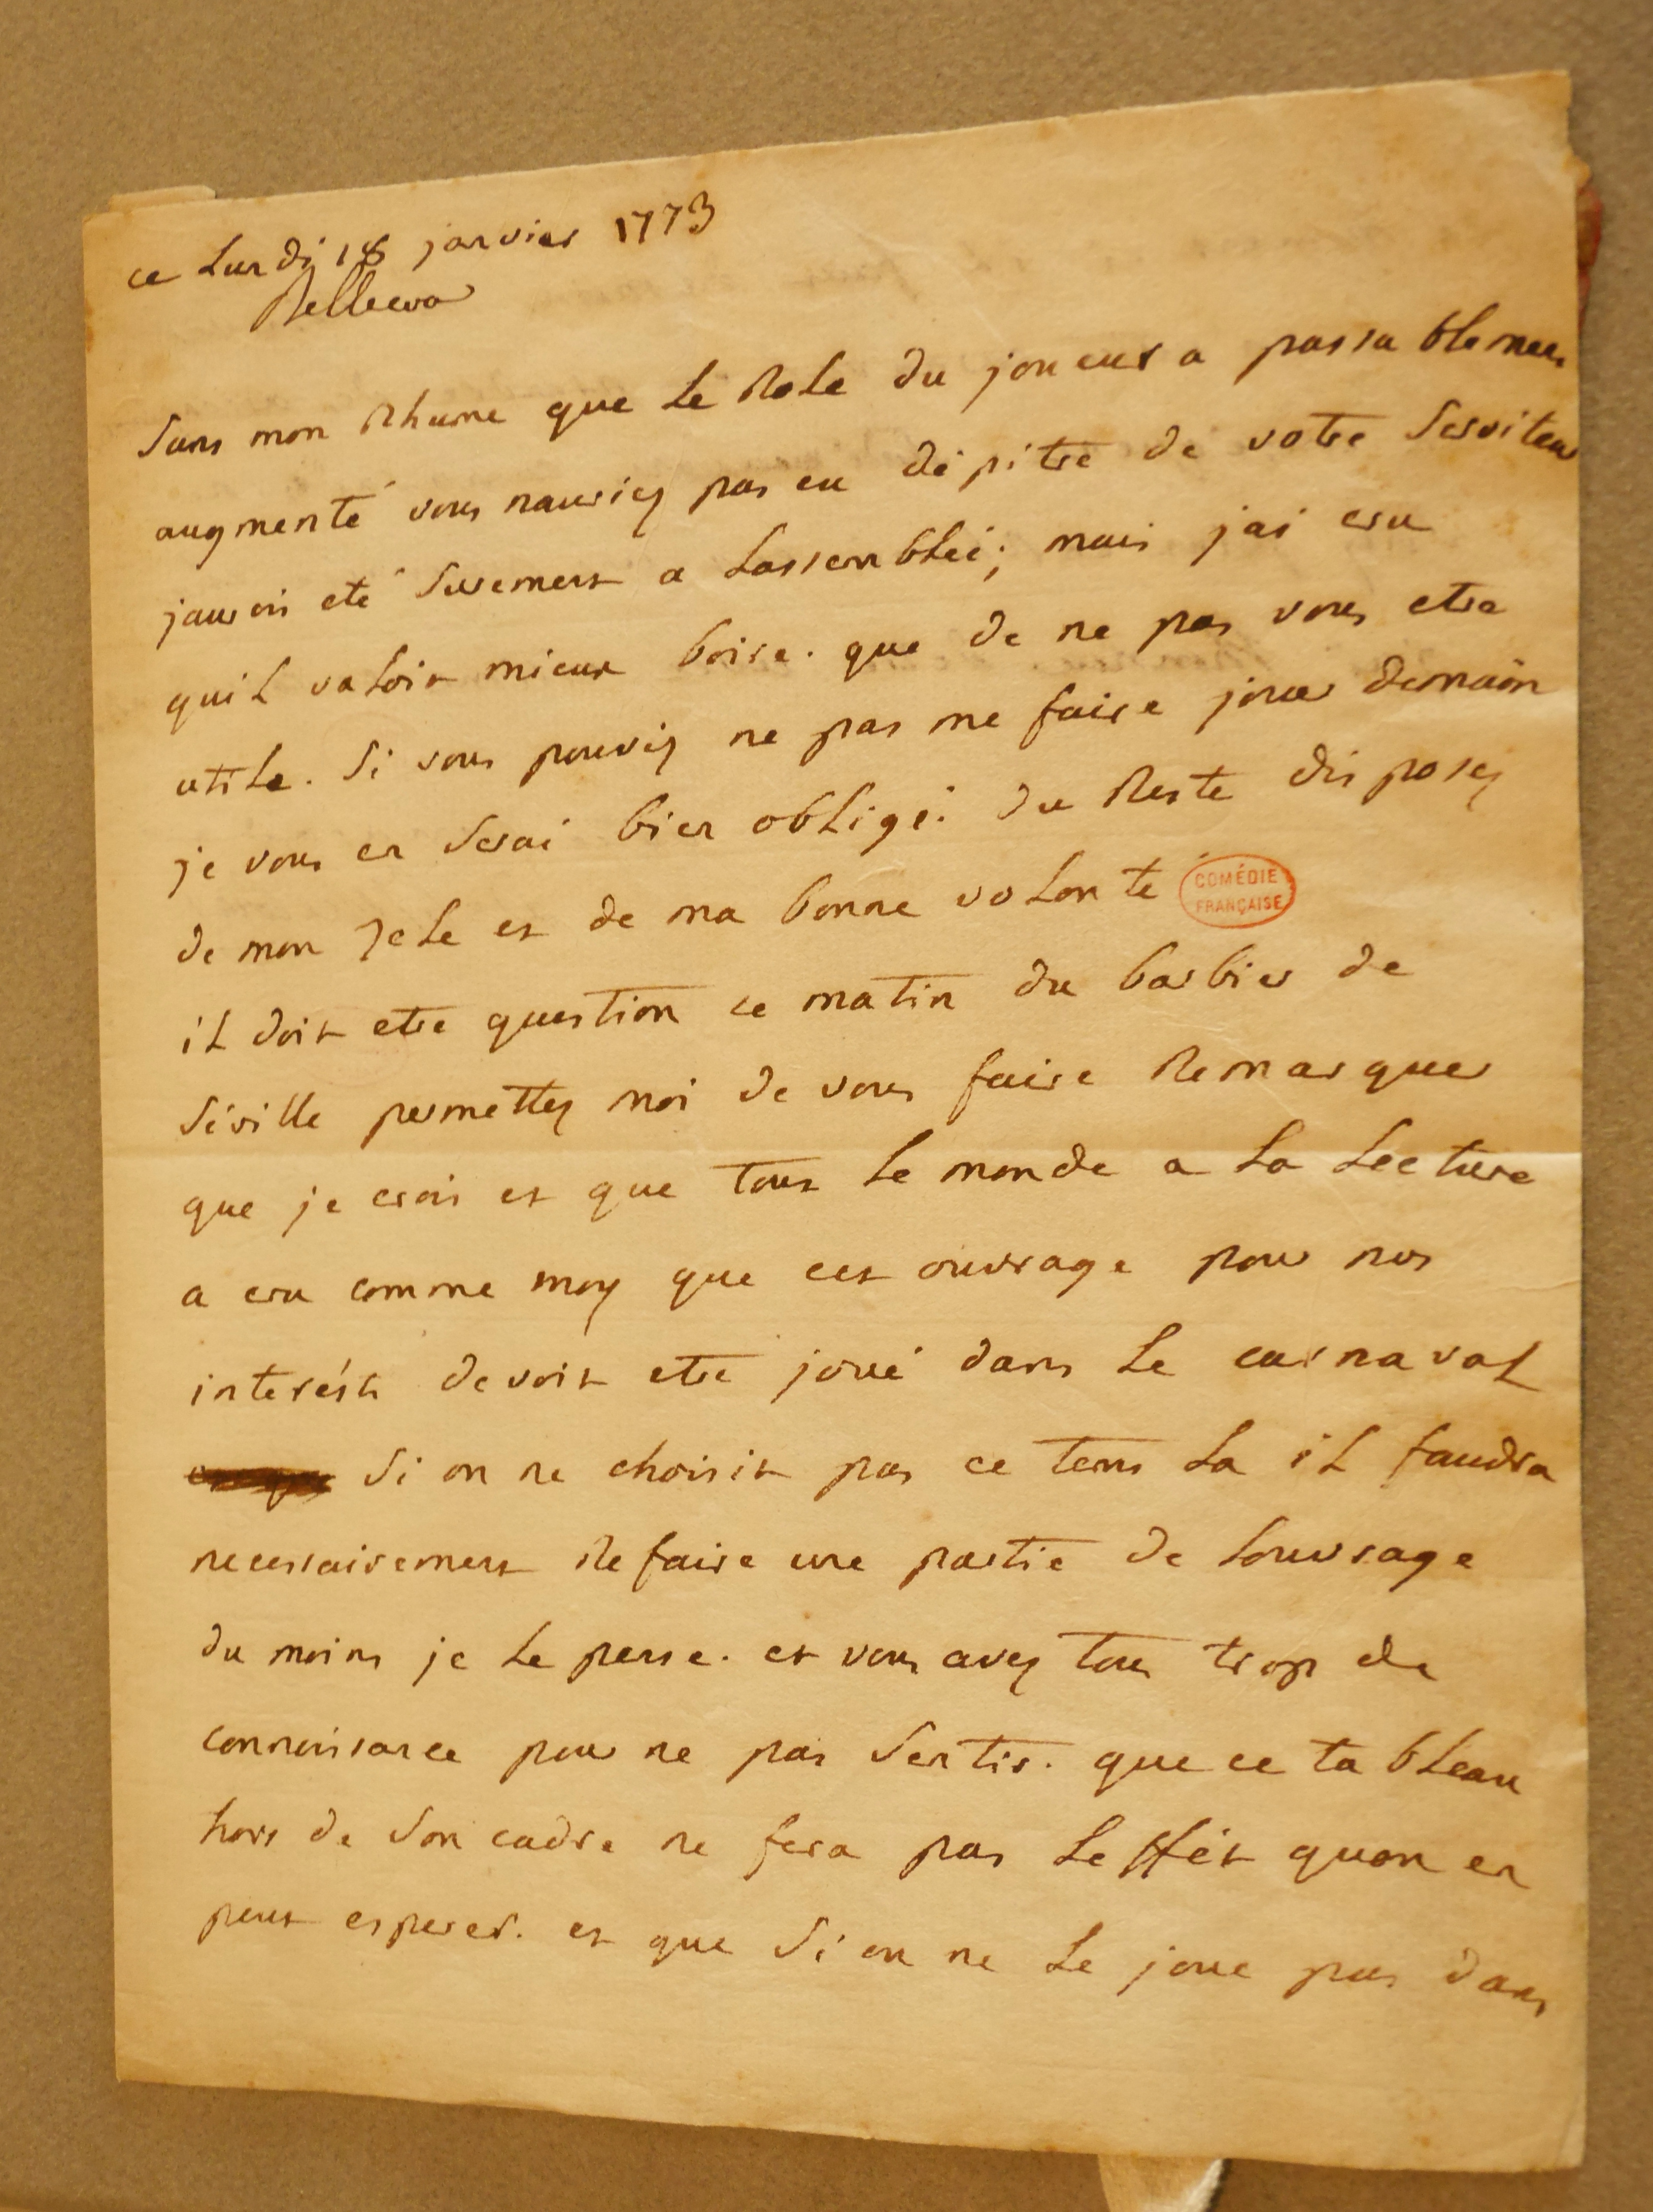 ce Lundi 18 janvier 1773
Bellecour
Sans mon Rhume que Le Role du joueur a passablement
augmenté vous nauriez pas eu dépitre de votre Serviteur
jaurois eté Surement a Lassemblée; mais jai cru
quil valoit mieux boire. que de ne pas vous etre
utile. Si vous pouviez ne pas me faire jouer demain
je vous en Serai bien obligé. du Reste disposez
de mon Zele et de ma bonne volonté
COMÉDIE
FRANÇAISE
il doit etre question ce matin du barbier de
Séville permettez moi de vous faire Remarquer
que je crois et que tout Le monde a La Lecture
a cru comme moy que cet ouvrage pour nos
interésts devoit etre joué dans Le carnaval
Si on ne choisit pas ce tems La il faudra
necessairement Refaire une partie de Louvrage
du moins je Le pense. et vous avez tous trop de
connoissance pour ne pas Sentir. que ce tableau
hors de Son cadre ne fera pas Leffét quon en
peut esperer. et que Si on ne Le joue pas dans